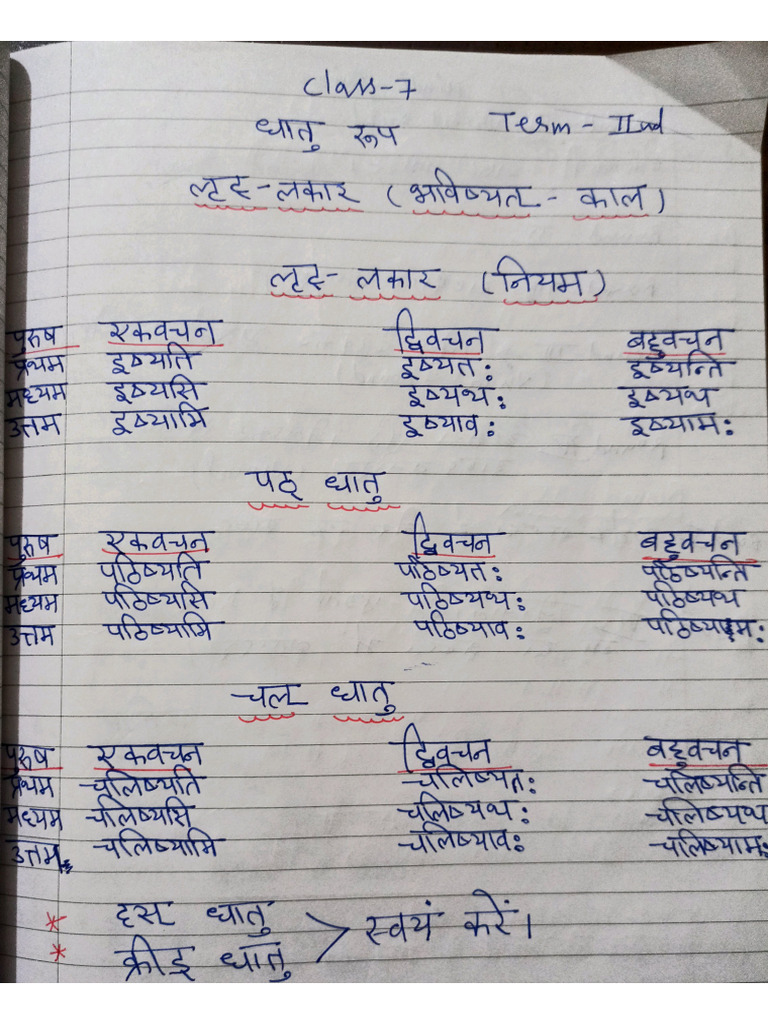 Class-7
धातु रूप Term - IInd
लृट्-लकार (भविष्यत् - काल)
लृट्- लकार (नियम)
पुरुष एकवचन द्विवचन बहुवचन
प्रथम इष्यति इष्यतः इष्यन्ति
मध्यम इष्यसि इष्यथः इष्यथ
उत्तम इष्यामि इष्यावः इष्यामः
पठ् धातु
पुरुष एकवचन द्विवचन बहुवचन
प्रथम पठिष्यति पठिष्यतः पठिष्यन्ति
मध्यम पठिष्यसि पठिष्यथः पठिष्यथ
उत्तम पठिष्यामि पठिष्यावः पठिष्यामः
चल् धातु
पुरुष एकवचन द्विवचन बहुवचन
प्रथम चलिष्यति चलिष्यतः चलिष्यन्ति
मध्यम चलिष्यसि चलिष्यथः चलिष्यथ
उत्तम चलिष्यामि चलिष्यावः चलिष्यामः
* हस् धातु
* क्रीड् धातु > स्वयं करें।